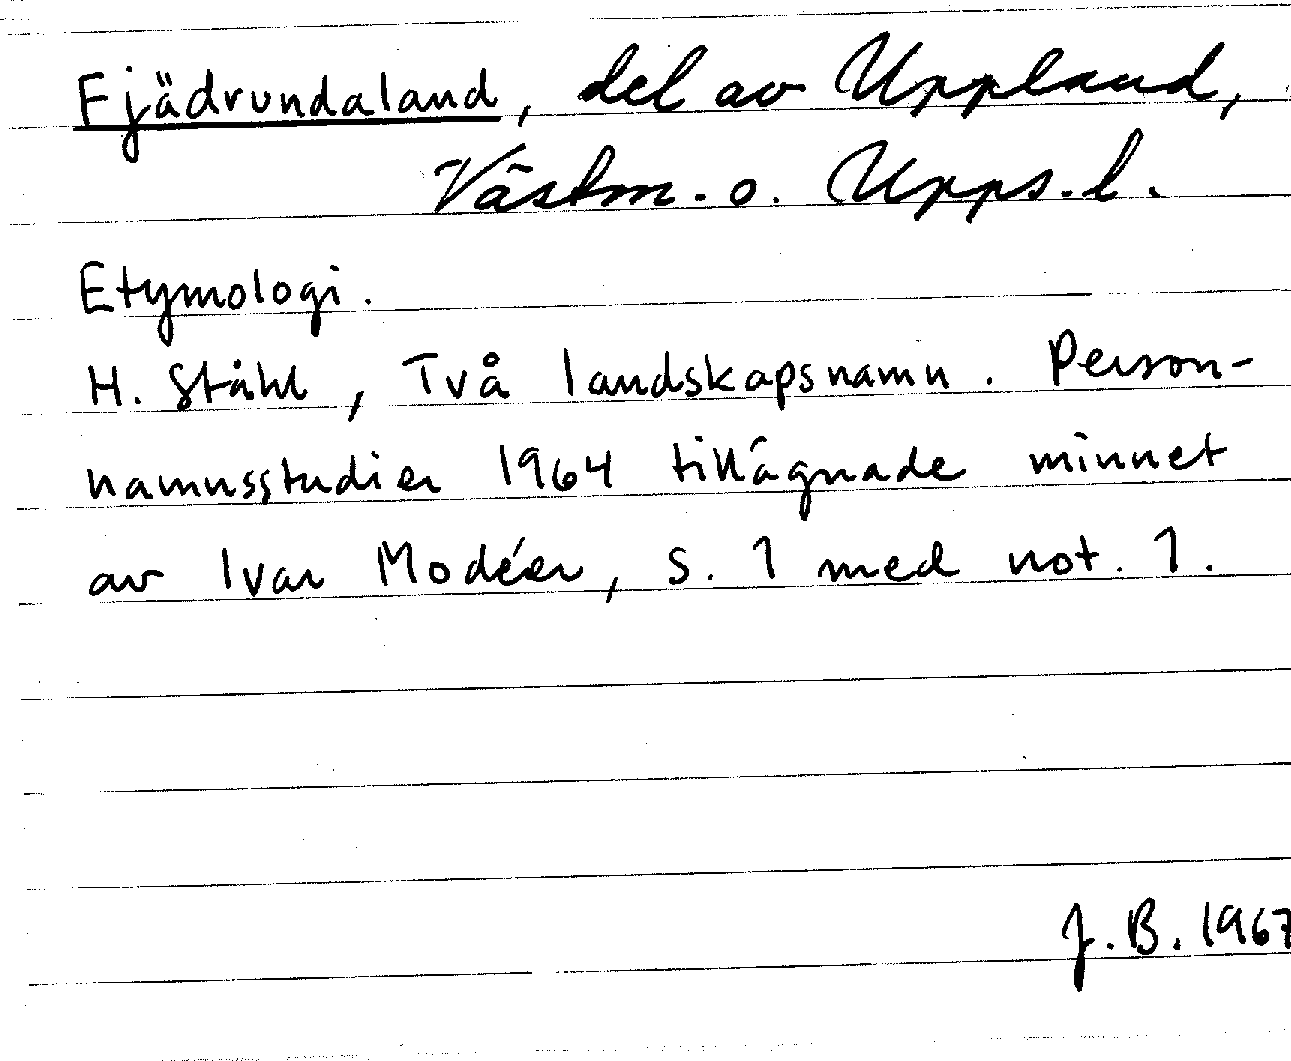 Fjädrundaland, del av Uppland,
Västm. o. Upps. l.
Etymologi.
H. Ståhl, Två landskapsnamn. Person-
namnsstudier 1964 tillägnade minnet
av Ivar Modéer, s. 1 med not. 1.
J. B. 1967